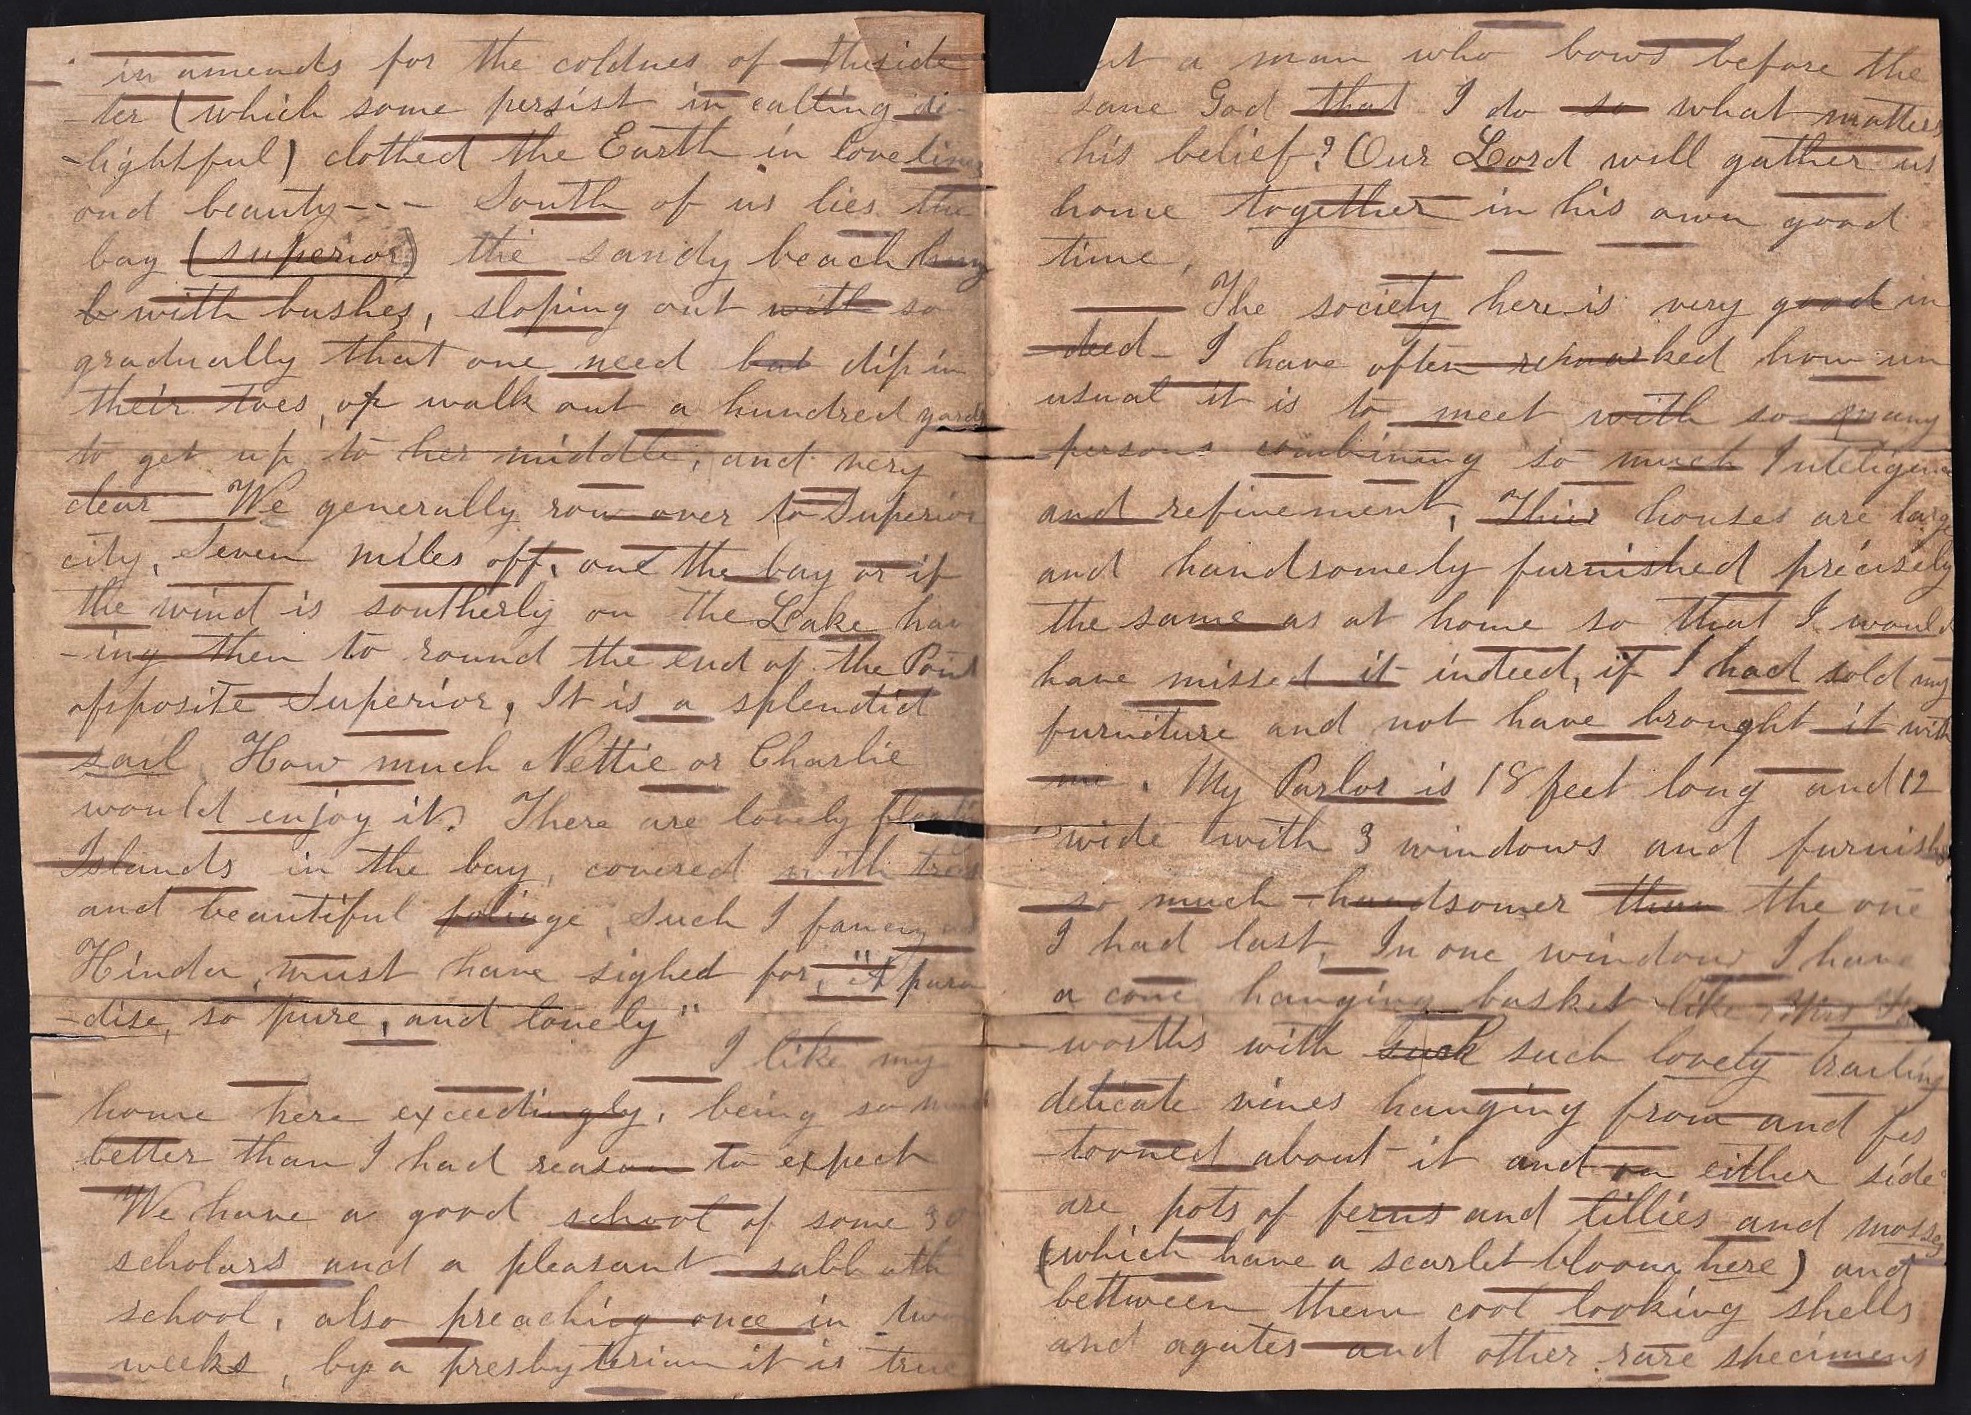 in amends for the coldnes of
ter (which some persist in calling de-
-lightful) clothed the Earth in lovelines
and beauty--- South of us lies the
bay (superior) the sandy beach hung
with bushes, sloping out with so
gradually that one need but dip in
their toes, or walk out a hundred yards
to get up to her middle, and very
clear We generally row over to Superior
city, Seven miles off, on the bay or if
the wind is southerly on the Lake hav
-ing then to round the end of the Point
opposite Superior, It is a splendid
sail How much Nettie or Charlie
would enjoy it? There are lovely
Islands in the bay, covered with trees
and beautiful foliage, Such I fancy as
Hinda, must have sighed for, "A para
-dise, so pure, and lonely"
I like my
home here exceedingly, being so much
better than I had reason to expect
We have a good school of some 30
scholars and a pleasant sabbath
school, also preaching once in two
weeks, by a presbyterian it is true
but a man who bows before the
same God that I do so what matters
his belief? Our Lord will gather us
home together in his own good
time,
The society here is very good in
deed- I have often remarked how un
usual it is to meet with so many
persons combining so much Inteligence
and refinement, Their houses are large
and handsomely furnished precisely
the same as at home so that I would
have missed it indeed, if I had sold my
furniture and not have brought it with
me. My Parlor is 18 feet long and 12
wide with 3 windows and furnished
so much handsomer than the one
I had last, In one window I have
a cone hanging basket like Mrs
worths with such such lovely trailing
delicate vines hanging from and fes
-tooned about it and on either side
are pots of ferns and lillies and mosses
(which have a scarlet bloom here) and
bettween them cool looking shells
and agates and other rare specimens